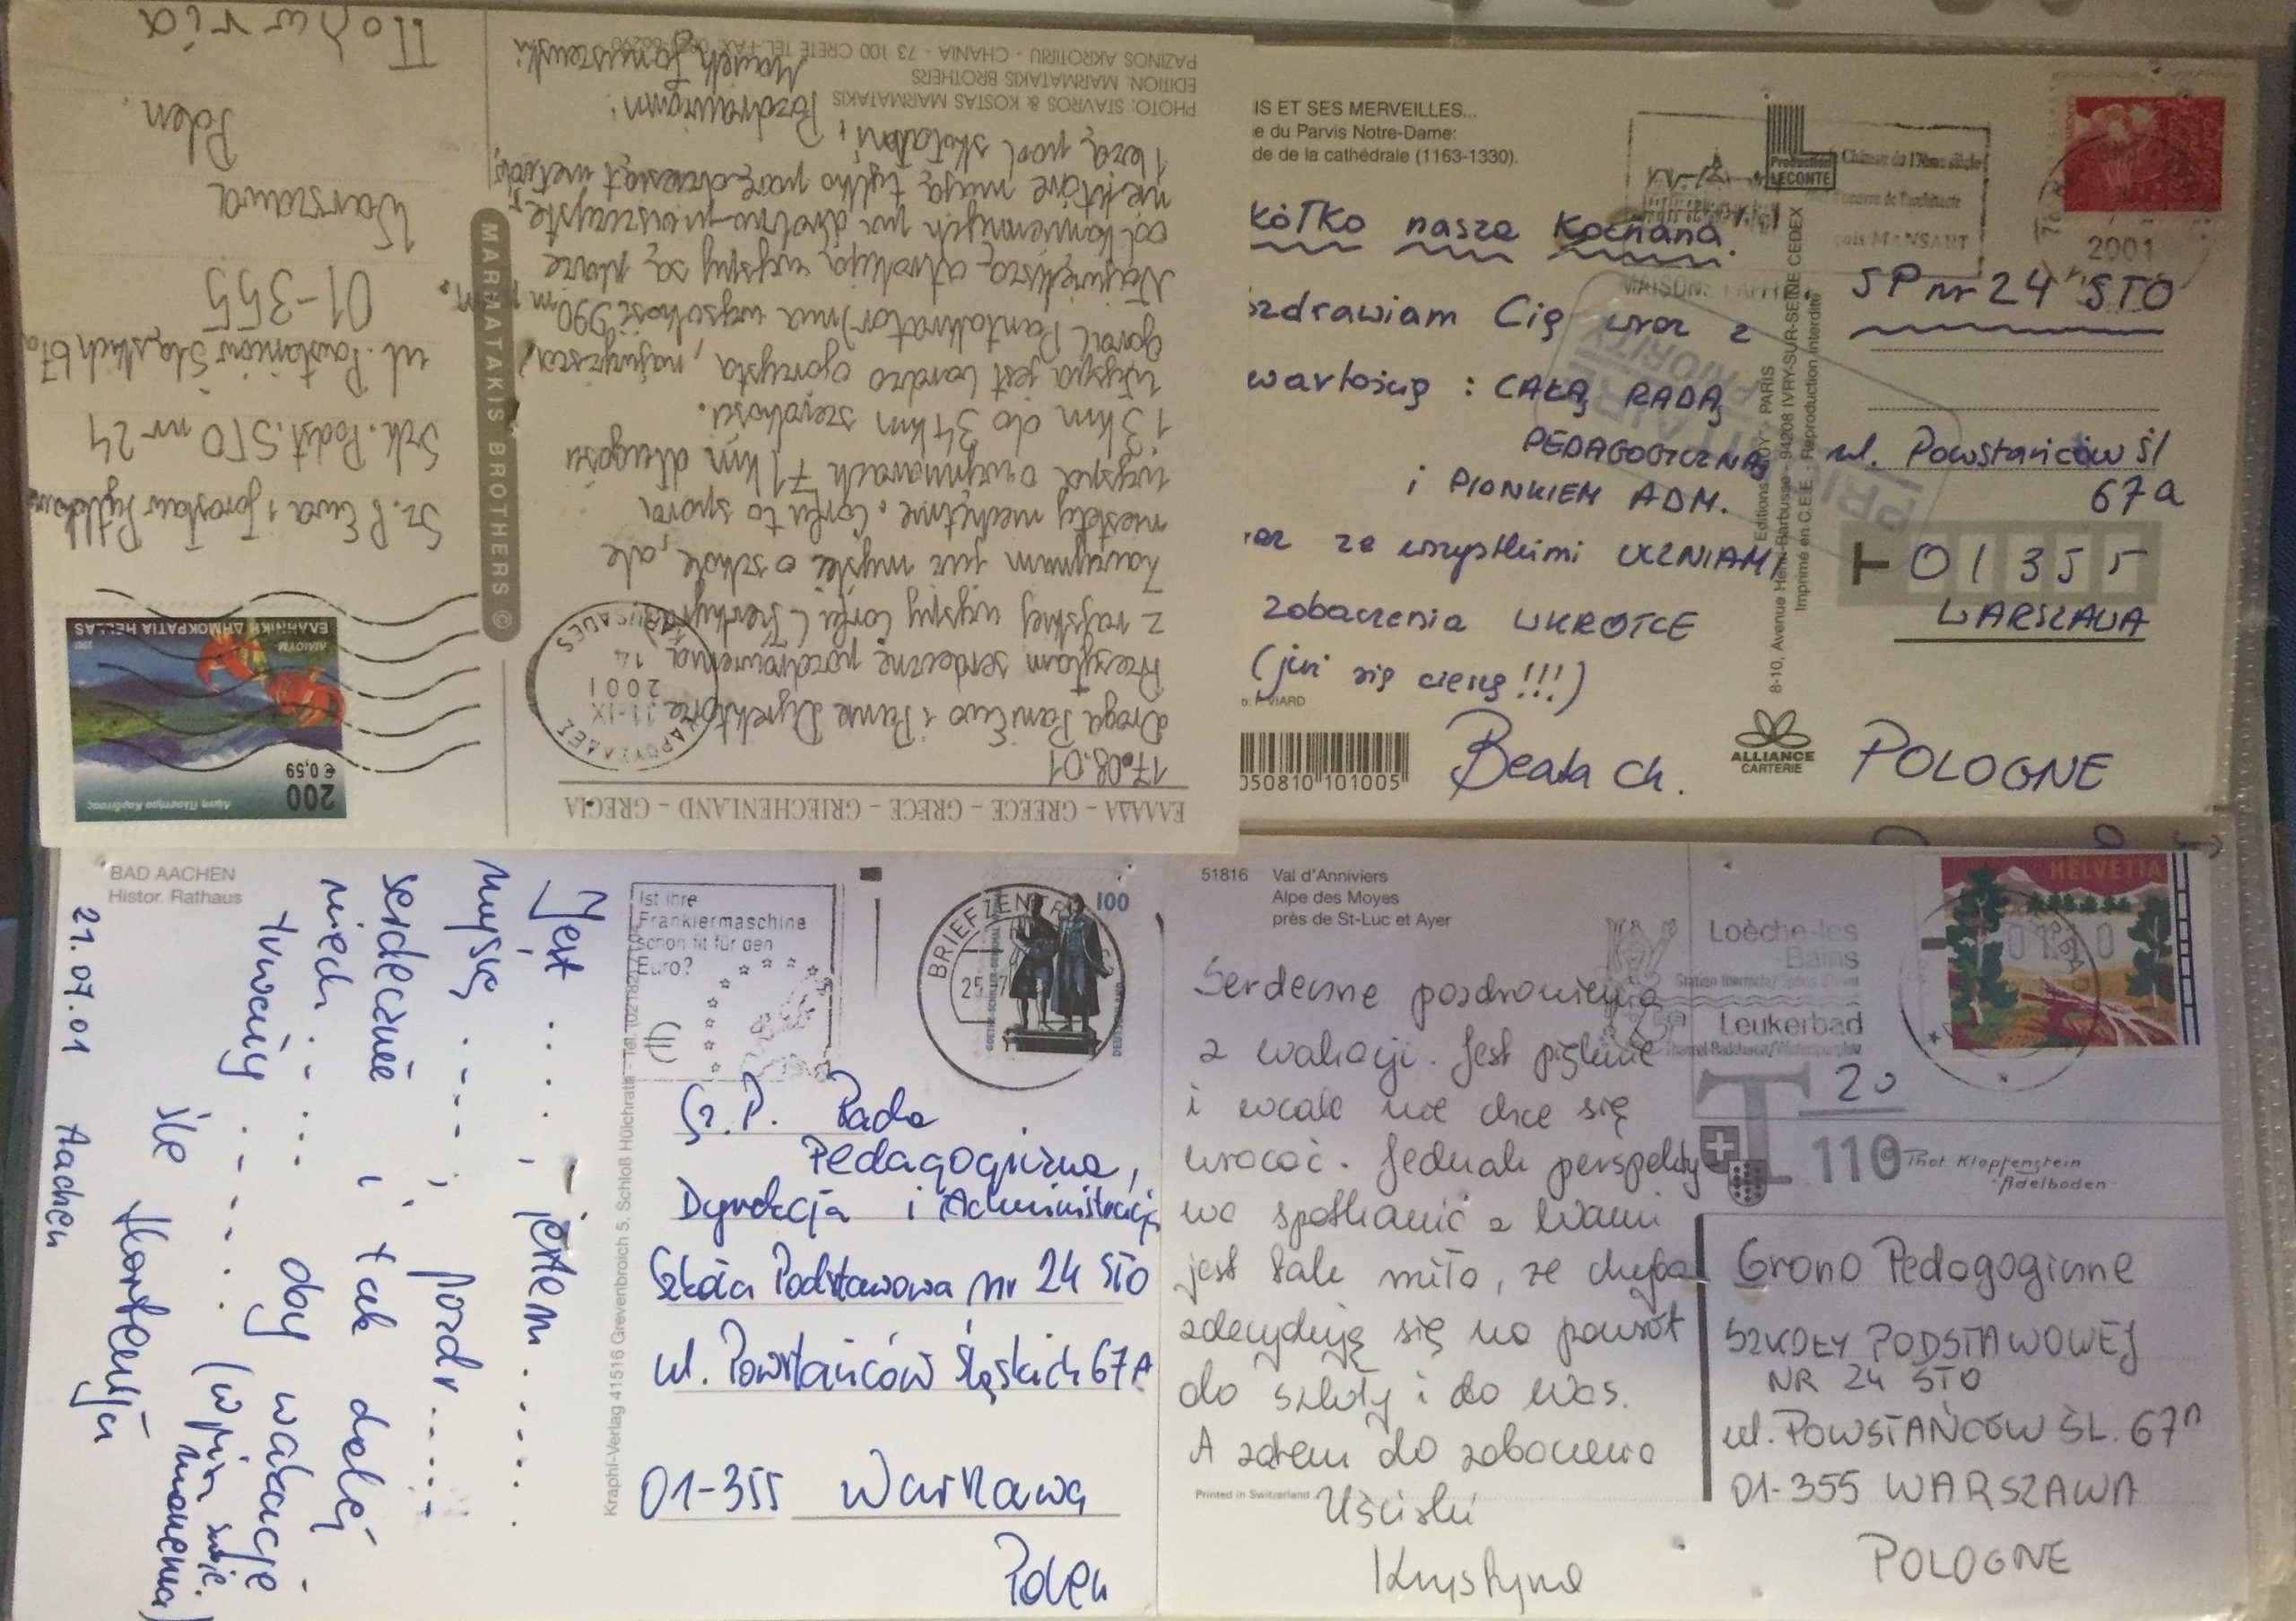 ΕΛΛΑΔΑ – GREECE – GRECE – GRIECHENLAND – GRECIA
17.08.01
Droga Pani Ewo i Panie Dyrektorze
Przesyłam serdeczne pozdrowienia
z rajskiej wyspy Corfu (Kerkyra)
Zaczynam już myśleć o szkole, ale
niestety niechętnie. Corfu to spora
wyspa o wymiarach 71 km długości
13 km do 34 km szerokości.
Wyspa jest bardzo górzysta, najwyższa
góra (Pantokrator) ma wysokość 990 m n.
Największą atrakcją wyspy są plaże
od kamiennych po drobno-piaszczyste,
niektóre mają tylko parędziesiąt metrów,
leżą pod skałami, Pozdrawiam!
PHOTO: STAVROS & KOSTAS MARMATAKIS
EDITION: MARMATAKIS BROTHERS
PAZINOS AKROTIRIU - CHANIA - 73 100 CRETE TEL. FAX.
MARMATAKIS BROTHERS ©
200
€ 0,59
ΕΛΛΗΝΙΚΗ ΔΗΜΟΚΡΑΤΙΑ HELLAS
11-IX
2001
14
KAROUSADES
Sz. P. Ewa i Jarosław
Szk. Podst. STO nr 24
ul. Powstańców Śląskich 67a
01-355
Warszawa
Polen
IS ET SES MERVEILLES...
e du Parvis Notre-Dame:
de de la cathédrale (1163-1330).
Production
LECONTE
Château du 17ème siècle
MANSART
2001
MAISONS LAFFITTE
PRIORITAIRE
PRIORITY
kółko nasza Kochana.
ozdrawiam Cię wraz z
wartością : CAŁĄ RADĄ
PEDAGOGICZNĄ
i PIONKIEM ADM.
raz ze wszystkimi UCZNIAMI
zobaczenia WKRÓTCE
(już się cieszę!!!)
Beata Ch.
VIARD
050810 101005
PARIS
8-10, Avenue Henri-Barbusse - 94208 IVRY-SUR-SEINE CEDEX
Imprimé en C.E.E. Reproduction interdite
ALLIANCE
CARTERIE
SP nr 24 STO
ul. Powstańców Śl
67a
01355
WARSZAWA
POLOGNE
BAD AACHEN
Histor. Rathaus
21.07.01 Aachen
Jest . . . . , jestem . . . . .
myślę . - - - , i pozdr . . . . .
serdecznie i tak dalej
niech . . . . . . day wakacje
trwają . . - - . (wpisz swoje marzenia)
śle Hortensja
Ist Ihre
Frankiermaschine
schon fit für den
Euro?
BRIEFZENTRUM 52
100
DEUTSCHLAND
Kraphi-Verlag 41516 Grevenbroich 5, Schloß Hülchrath
Sz.P. Rada
Pedagogiczna,
Dyrekcja i Administracja
Szkoła Podstawowa nr 24 STO
ul. Powstańców Śląskich 67A
01-355 Warszawa
Polen
51816 Val d'Anniviers
Alpe des Moyes
près de St-Luc et Ayer
Serdeczne pozdrowienia
z wakacji. Jest pięknie
i wcale nie chce się
wracać. Jednak perspekty
wa spotkania z Wami
jest tak miła, że chyba
zdecyduję się na powrót
do szkoły i do Was.
A zatem do zobaczenia
Uściski
Krystyna
Printed in Switzerland
Loèche-les
-Bains
Leukerbad
HELVETIA
20
110
Thot. Klopfenstein
Adelboden
Grono Pedagogiczne
SZKOŁY PODSTAWOWEJ
NR 24 STO
ul. POWSTAŃCÓW ŚL. 67A
01-355 WARSZAWA
POLOGNE